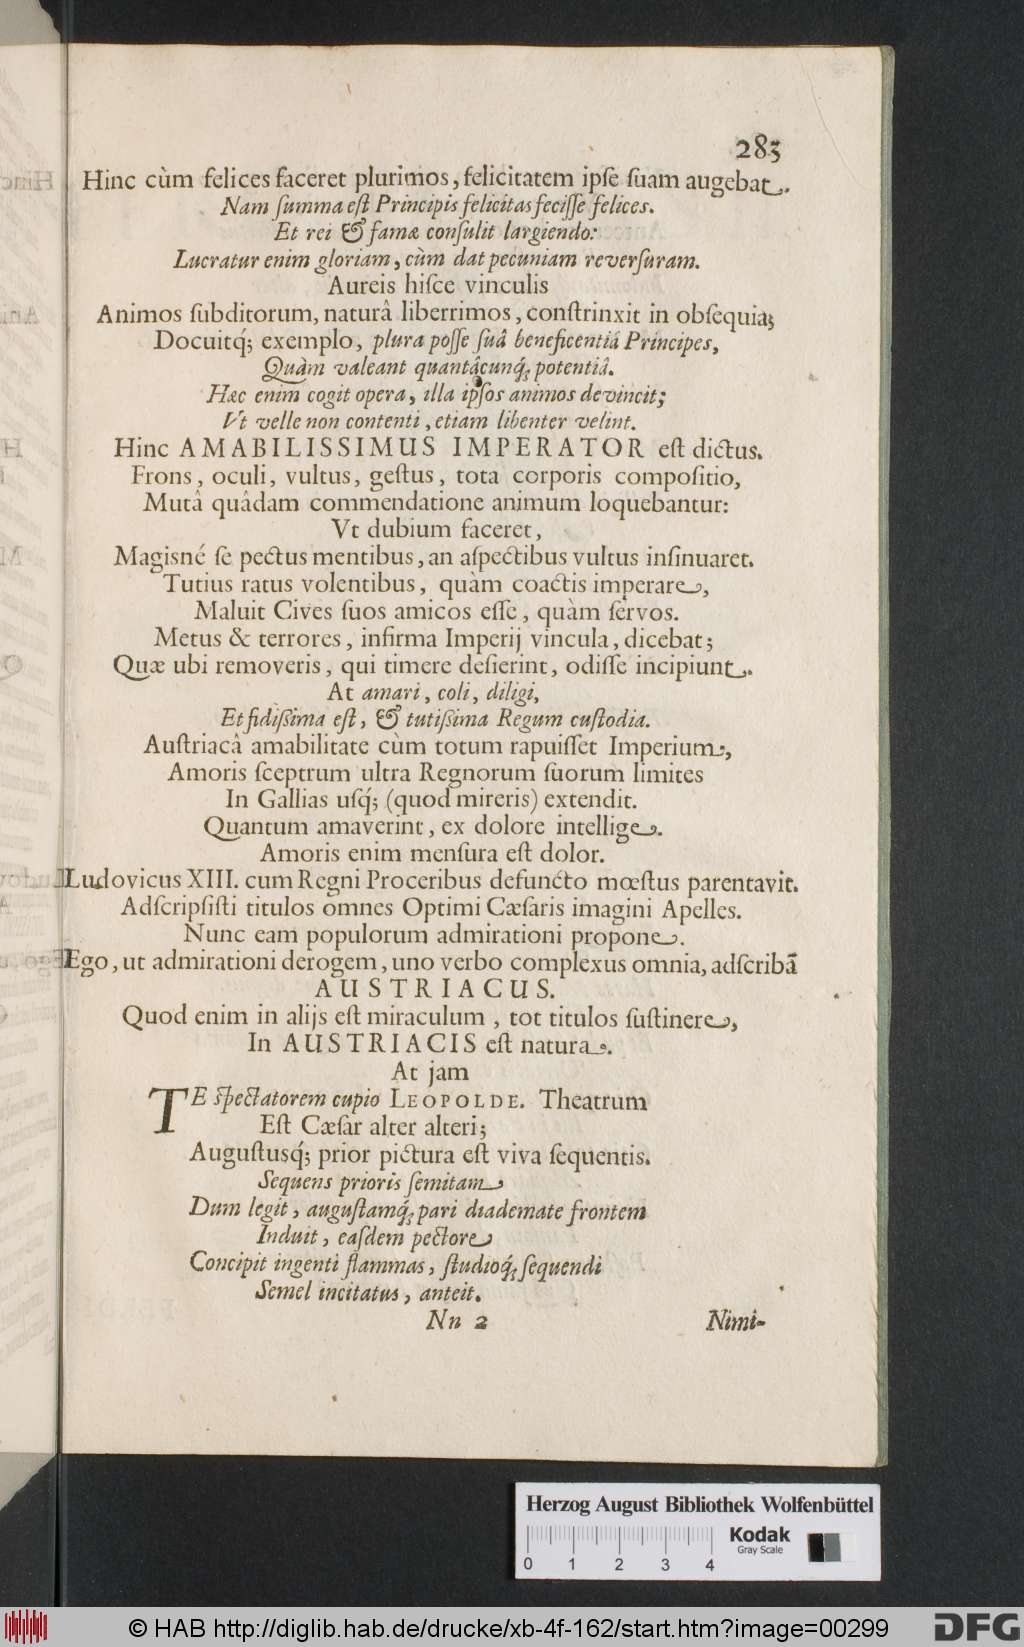 283
Hinc cùm felices faceret plurimos, felicitatem ipſe ſuam augebat.
Nam ſumma eſt Principis felicitas feciſſe felices.
Et rei & famæ conſulit largiendo:
Lucratur enim gloriam, cùm dat pecuniam reverſuram.
Aureis hiſce vinculis
Animos ſubditorum, naturâ liberrimos, conſtrinxit in obſequia;
Docuitq́; exemplo, plura poſſe ſuâ beneficentiâ Principes,
Quàm valeant quantâcunq́; potentiâ.
Hæc enim cogit opera, illa ipſos animos devincit;
Vt velle non contenti, etiam libenter velint.
Hinc AMABILISSIMUS IMPERATOR eſt dictus.
Frons, oculi, vultus, geſtus, tota corporis compoſitio,
Mutâ quâdam commendatione animum loquebantur:
Vt dubium faceret,
Magisné ſe pectus mentibus, an aſpectibus vultus inſinuaret.
Tutius ratus volentibus, quàm coactis imperare,
Maluit Cives ſuos amicos eſſe, quàm ſervos.
Metus & terrores, infirma Imperij vincula, dicebat;
Quæ ubi removeris, qui timere deſierint, odiſſe incipiunt.
At amari, coli, diligi,
Et fidiſsima eſt, & tutiſsima Regum cuſtodia.
Auſtriacâ amabilitate cùm totum rapuiſſet Imperium,
Amoris ſceptrum ultra Regnorum ſuorum limites
In Gallias uſq́; (quod mireris) extendit.
Quantum amaverint, ex dolore intellige.
Amoris enim menſura eſt dolor.
Ludovicus XIII. cum Regni Proceribus defuncto mœſtus parentavit.
Adſcripſiſti titulos omnes Optimi Cæſaris imagini Apelles.
Nunc eam populorum admirationi propone.
Ego, ut admirationi derogem, uno verbo complexus omnia, adſcribã
AUSTRIACUS.
Quod enim in alijs eſt miraculum, tot titulos ſuſtinere,
In AUSTRIACIS eſt natura.
At jam
TE ſpectatorem cupio LEOPOLDE. Theatrum
Eſt Cæſar alter alteri;
Auguſtusq́; prior pictura eſt viva ſequentis.
Sequens prioris ſemitam
Dum legit, auguſtamq́; pari diademate frontem
Induit, eaſdem pectore
Concipit ingenti flammas, ſtudioq́; ſequendi
Semel incitatus, anteit.
Nn 2 Nimi-
Herzog August Bibliothek Wolfenbüttel
0 1 2 3 4
Kodak
Gray Scale
© HAB http://diglib.hab.de/drucke/xb-4f-162/start.htm?image=00299
DFG